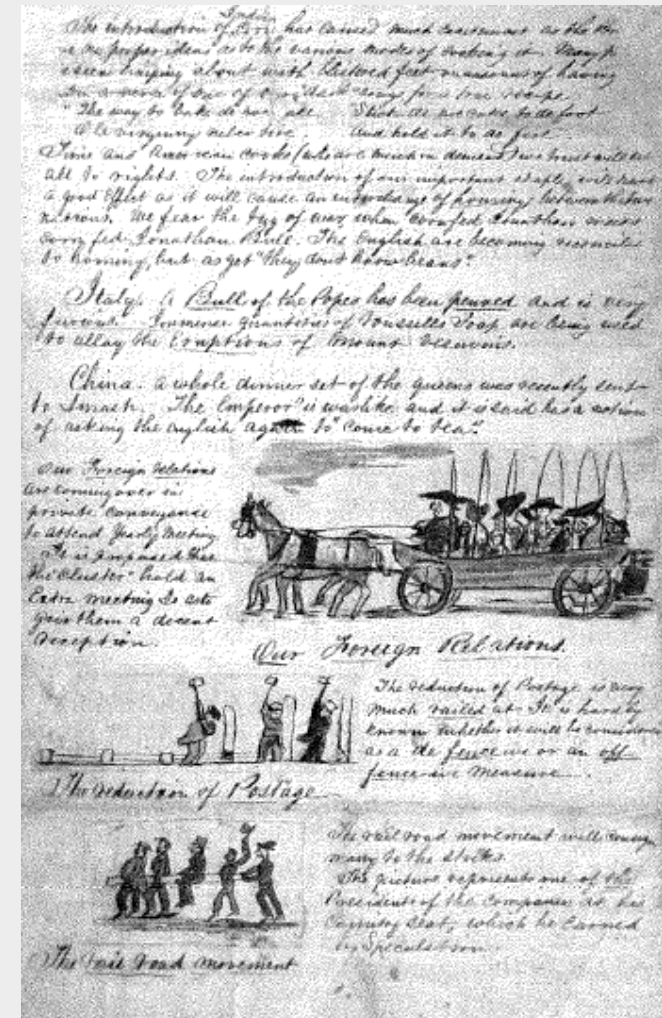 Indian
The introduction of Corn has caused much excitement as the
no proper ideas as to the various modes of cooking it. Many
seen limping about with blistered feet victims of having
one of our songs for a true recipe.
"The way to bake de hoe cake Stick de hoe cake to de foot
Ole virginny neber tire. And hold it to de fire.
Time and American cooks (who are much in demand) we trust will set
all to rights. The introduction of our important staple, will have
a good effect as it will cause an interchange of between the two
nations. We fear the tug of war when cornfed Jonathan meets
corn fed Jonathan Bull. The English are becoming reconciled
to hominy, but as yet "they dont know beans".
Italy. A Bull of the Popes has been penned and is very
furious. Immense quantities of Soap are being used
to allay the Eruptions of Mount Vesuvius.
China. A whole dinner set of the queens was recently sent
to Smash. The Emperor is warlike and it is said has a notion
of asking the english again to "come to tea".
Our Foreign relations
are coming over in
private conveyance
to attend Yearly Meeting
It is proposed that
the "Cluster" hold an
Extra meeting &
give them a decent
reception.
Our Foreign Relations.
The reduction of Postage is very
much railed at. It is hard by
known whether it will be considered
as a de fence ive or an off
fence ive measure.
The reduction of Postage
The rail road movement will consign
many to the stocks.
The picture represents one of the
Presidents of the Companies at his
Country Seat, which he earned
by Speculation.
The rail road movement